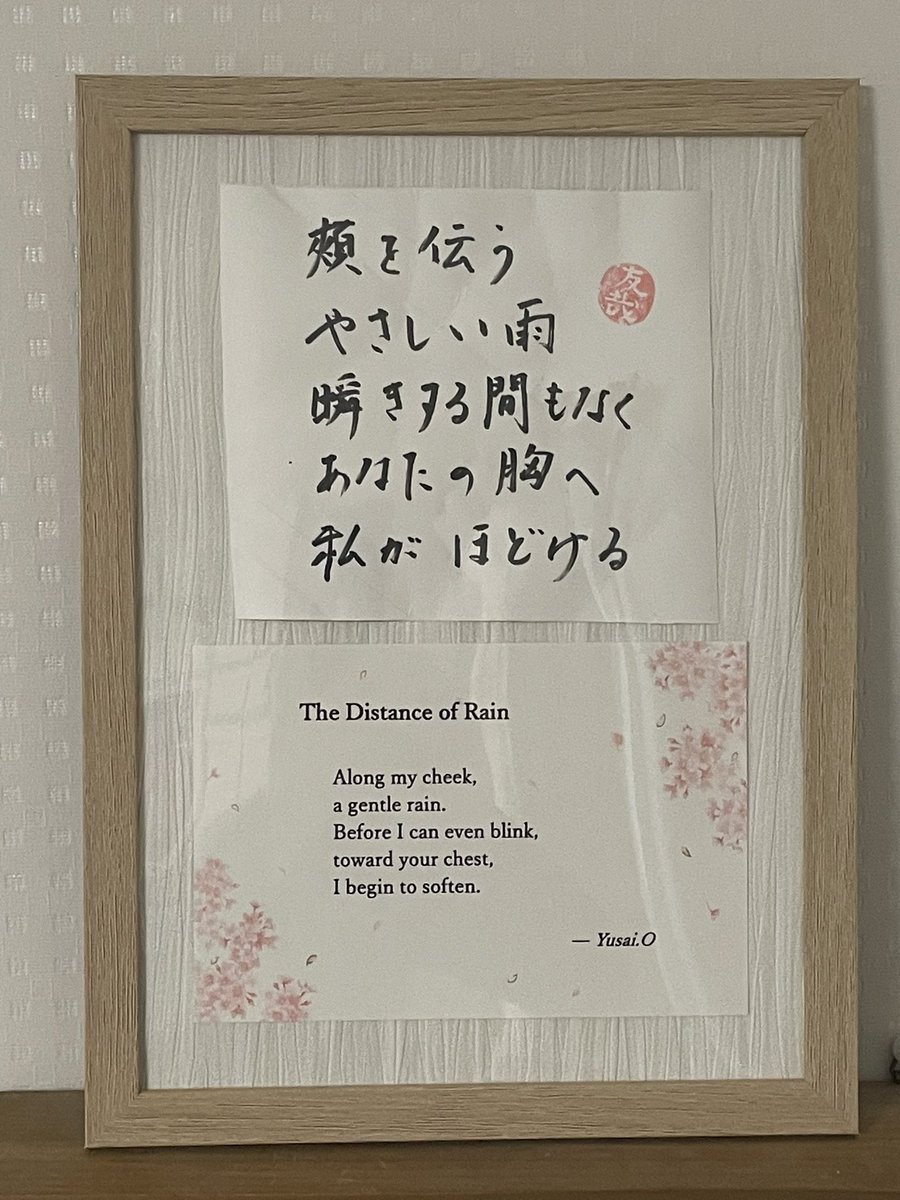 頬を伝う
やさしい雨
瞬きする間もなく
あなたの胸へ
私がほどける
友哉
The Distance of Rain
Along my cheek,
a gentle rain.
Before I can even blink,
toward your chest,
I begin to soften.
— Yusai.O